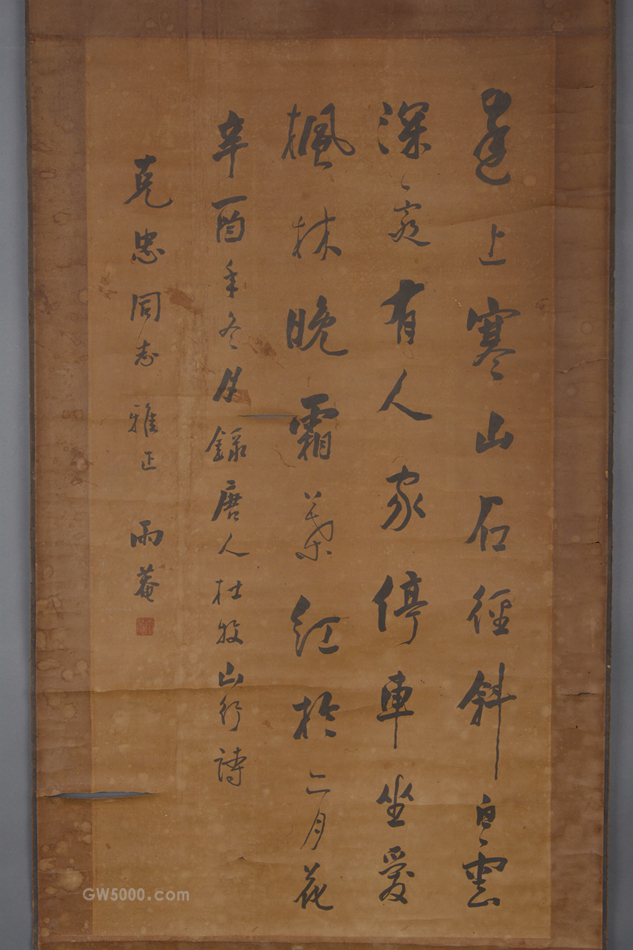 遠上寒山石徑斜白雲
深處有人家停車坐愛
楓林晚霜葉紅於二月花
辛酉年冬月錄唐人杜牧山行詩
克忠同志雅正 雨菴
GW5000.com